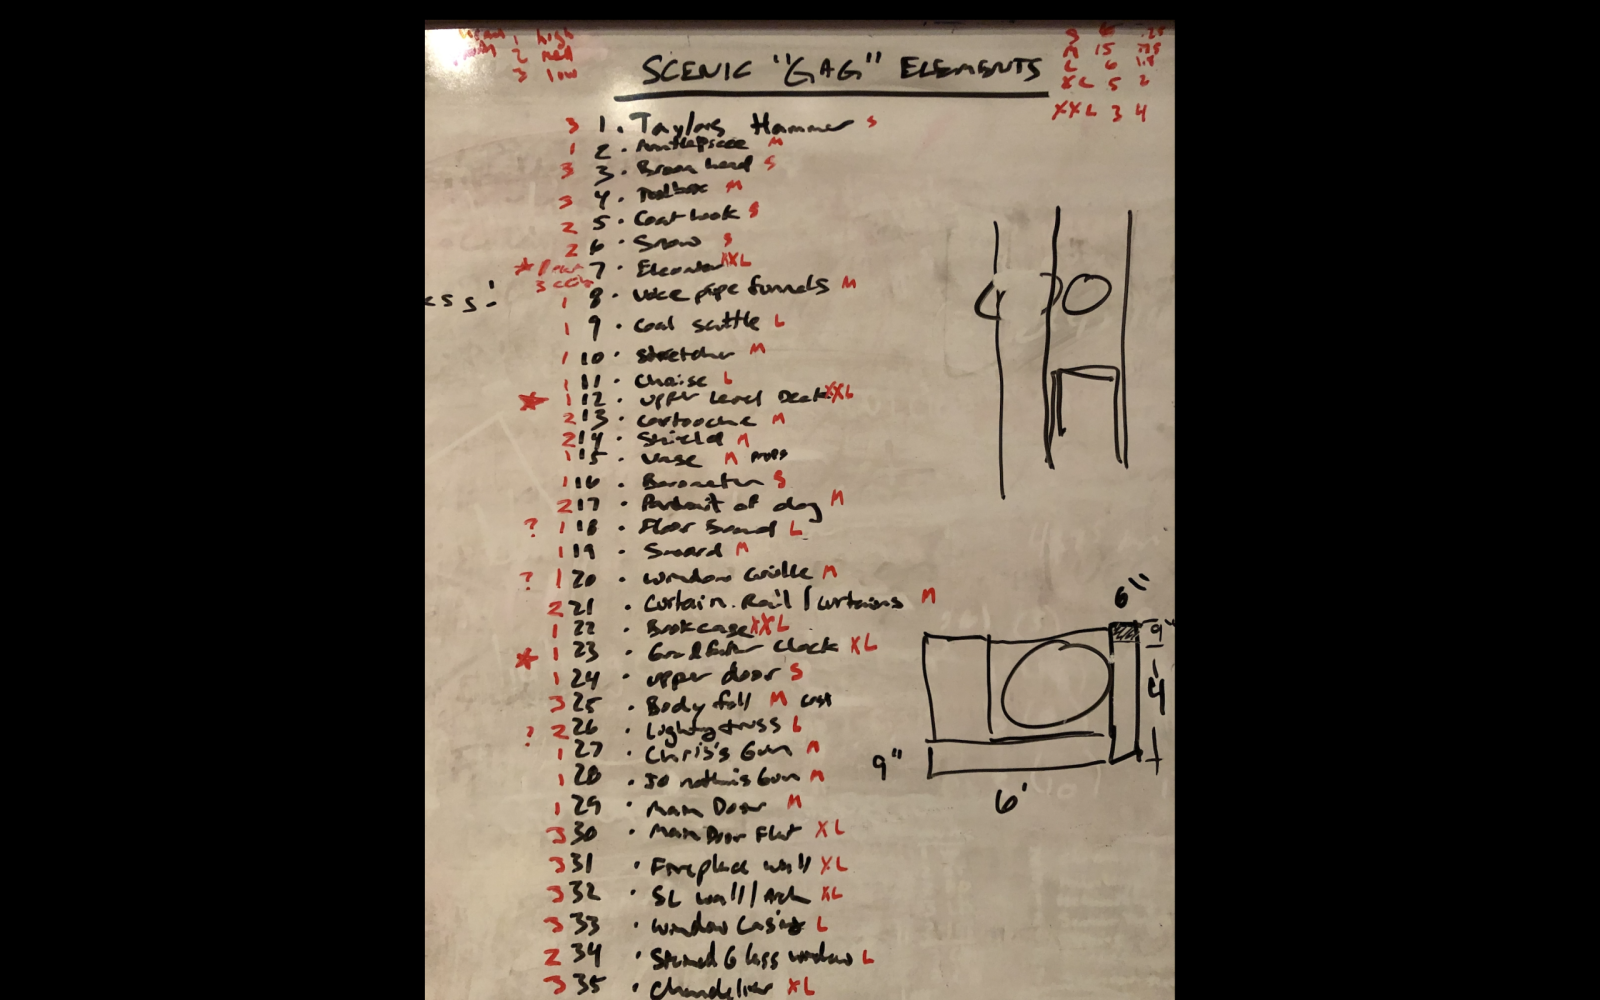 1 high
2 med
3 low
SCENIC "GAG" ELEMENTS
S 6 .25
M 15 .75
L 6
XL 5 2
XXL 3 4
3 1. Taylors Hammer S
1 2. Mantlepiece M
3 3. Broom head S
3 4. Toolbox M
2 5. Coat hook S
2 6. Snow S
* 7. Elevator XXL
ess:
1 8. Voice pipe funnels M
1 9. Coal scuttle L
1 10. Stretcher M
1 11. Chaise L
* 1 12. Upper level Deck XXL
2 13. Cartouche M
2 14. Shield M
1 15. Vase M props
1 16. Barometer S
2 17. Portrait of dog M
? 1 18. Floor L
1 19. Sword M
? 1 20. Window Griddle M
2 21. Curtain Rail / Curtains M
1 22. Bookcase XXL
* 1 23. Grandfather Clock XL
1 24. upper door S
3 25. Body fall M cast
? 2 26. Lighting truss L
1 27. Chris's Gun M
1 28. Jonathans Gun M
1 29. Main Door M
3 30. Main Door Flat XL
3 31. Fireplace wall XL
3 32. SL wall/Arch XL
3 33. Window Casing L
2 34. Stained Glass window L
3 35. Chandelier XL
6"
9"
4
9"
6'